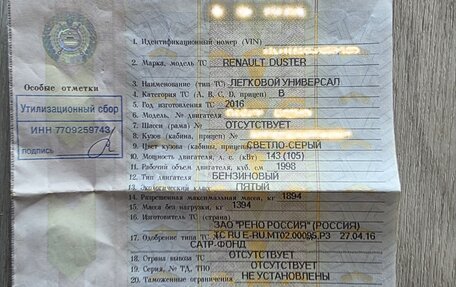 1. Идентификационный номер (VIN)
2. Марка, модель ТС RENAULT DUSTER
3. Наименование (тип ТС) ЛЕГКОВОЙ УНИВЕРСАЛ
Особые отметки
4. Категория ТС (А, В, С, D, прицеп) В
5. Год изготовления ТС 2016
Утилизационный сбор
6. Модель, № двигателя
7. Шасси (рама) № ОТСУТСТВУЕТ
ИНН 7709259743
8. Кузов (кабина, прицеп) №
9. Цвет кузова (кабины, прицепа) СВЕТЛО-СЕРЫЙ
подпись
10. Мощность двигателя, л. с. (кВт) 143 (105)
11. Рабочий объем двигателя, куб. см 1998
12. Тип двигателя БЕНЗИНОВЫЙ
13. Экологический класс ПЯТЫЙ
14. Разрешенная максимальная масса, кг 1894
15. Масса без нагрузки, кг 1394
16. Изготовитель ТС (страна)
ЗАО "РЕНО РОССИЯ" (РОССИЯ)
17. Одобрение типа ТС RU E-RU.MT02.00096.P3 27.04.16
САТР-ФОНД
18. Страна вывоза ТС ОТСУТСТВУЕТ
19. Серия, № ТД, ТПО ОТСУТСТВУЕТ
20. Таможенные ограничения НЕ УСТАНОВЛЕНЫ